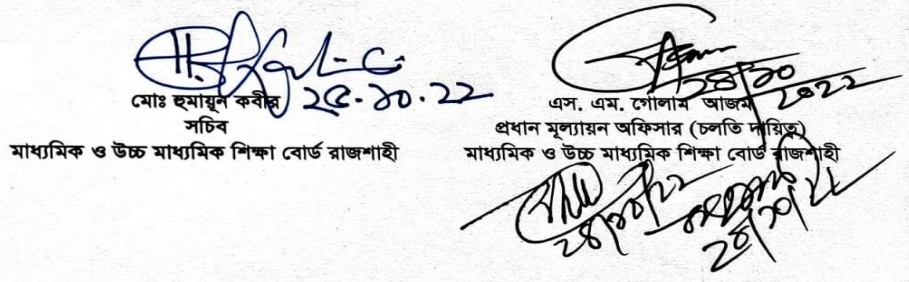 ২৫.১০.২২
মোঃ হুমায়ুন কবীর
সচিব
মাধ্যমিক ও উচ্চ মাধ্যমিক শিক্ষা বোর্ড রাজশাহী
২৪/১০
২০২২
এস. এম. গোলাম আজম
প্রধান মূল্যায়ন অফিসার (চলতি দায়িত্ব)
মাধ্যমিক ও উচ্চ মাধ্যমিক শিক্ষা বোর্ড রাজশাহী
২৪/১০/২২
২৪/১০/২২